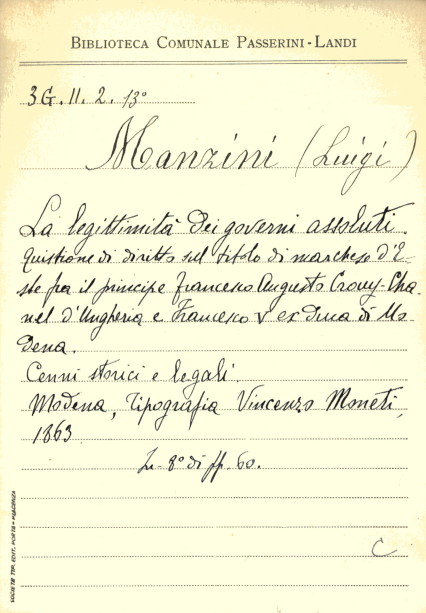 BIBLIOTECA COMUNALE PASSERINI-LANDI
3G. II. 2. 13°
Manzini (Luigi)
La legittimità dei governi assoluti.
Quistione di diritto sul titolo di marchese d'E-
ste fra il principe Francesco Augusto Crouy-Cha-
nel d'Ungheria e Francesco V ex duca di Mo-
dena.
Cenni storici e legali.
Modena, Tipografia Vincenzo Moneti,
1863
In-8° di pp. 60.
C
SOCIETÀ TIP. EDIT. PORTA - PIACENZA